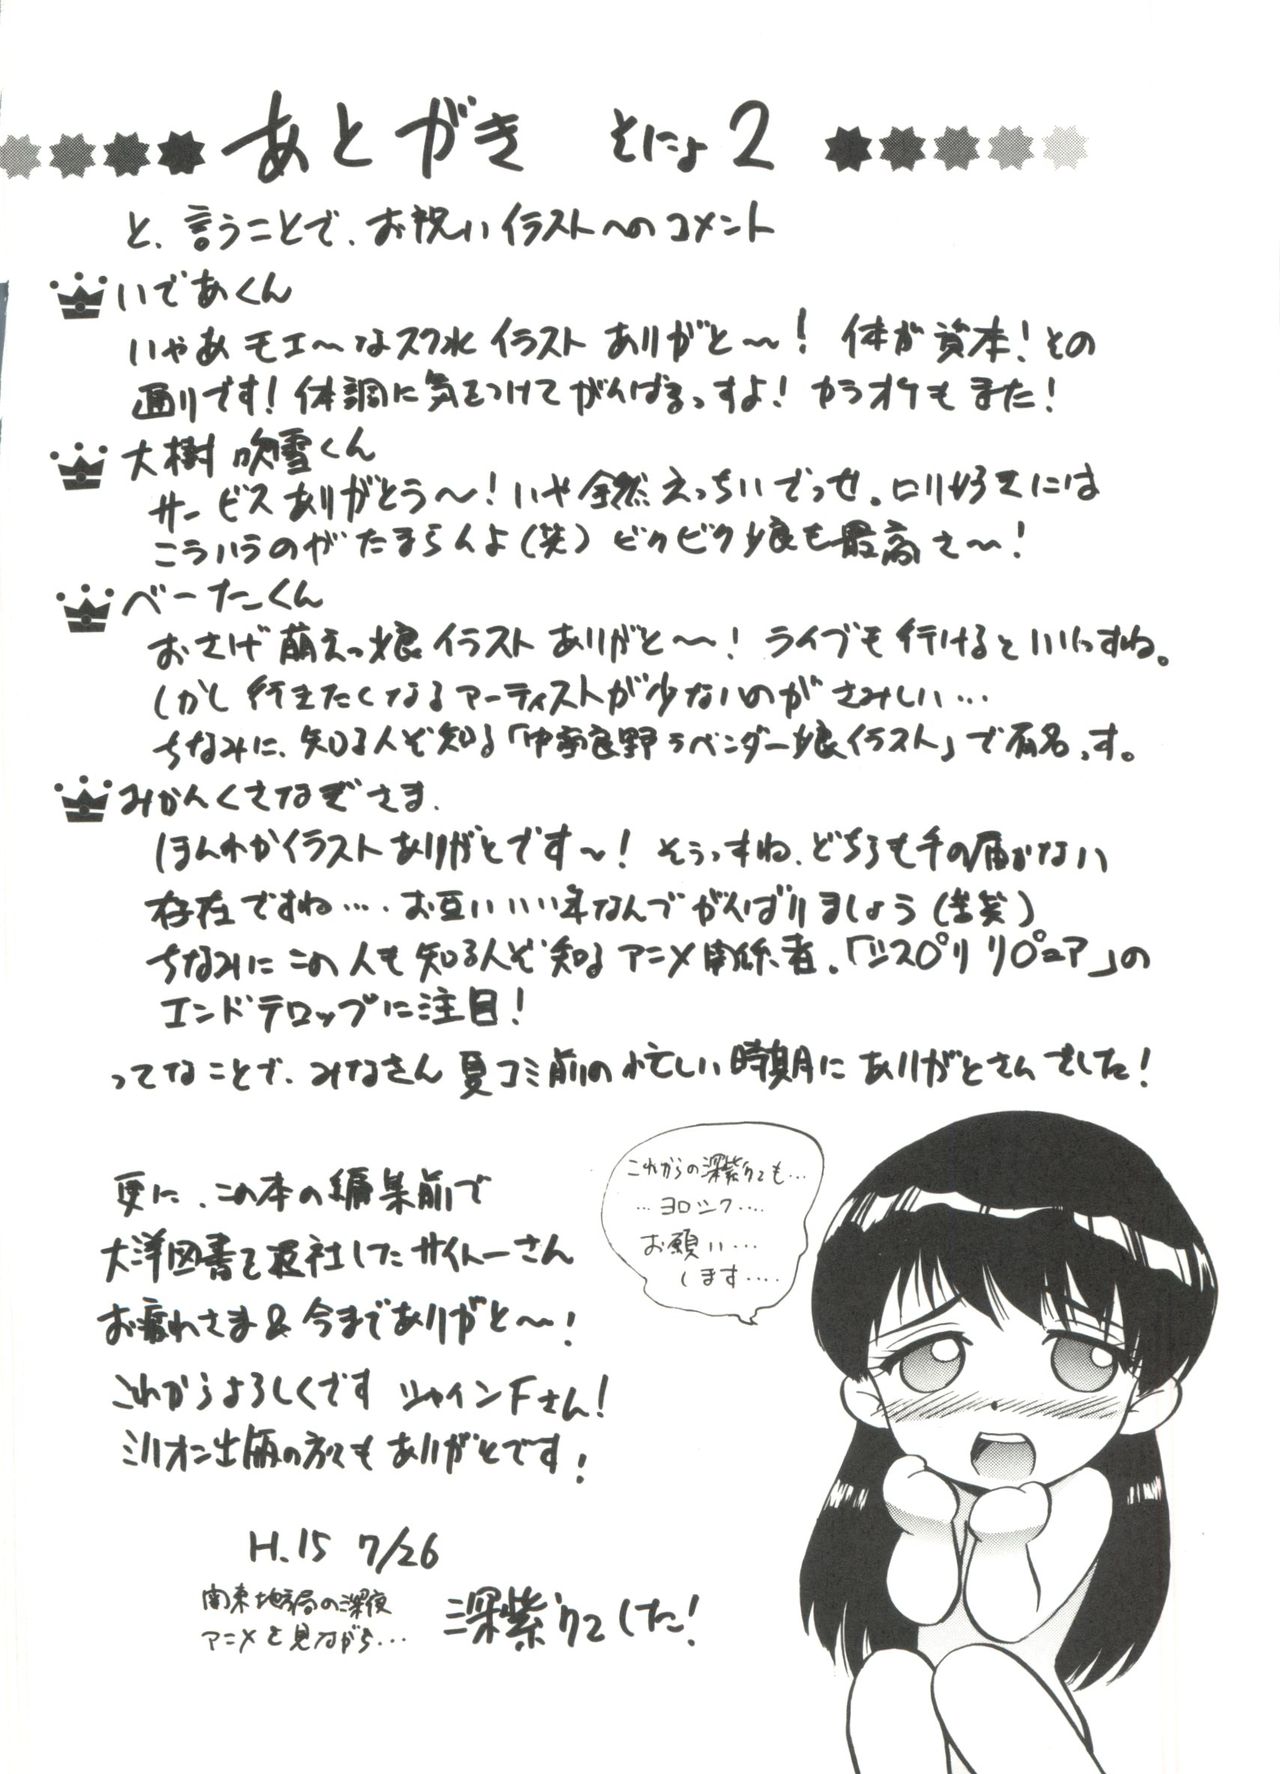 あとがき そにょ2
と、言うことで、お祝いイラストへのコメント
いであくん
いやあモエ〜なスク水イラストありがと〜！体が資本！その
通りです！体調に気をつけてがんばるっすよ！カラオケもまた！
大樹吹雪くん
サービスありがとう〜！いや全然えっちいでっせ。ロリ好きには
こういうのがたまらんよ(笑)ビクビク娘も最高さ〜！
べーたくん
おさげ萌えっ娘イラストありがと〜！ライブも行けるといいっすね。
しかし行きたくなるアーティストが少ないのがさみしい…
ちなみに、知る人ぞ知る「中富良野ラベンダー娘イラスト」で有名っす。
みかんくさなぎさま．
ほんわかイラストありがとです〜！そうっすね、どちらも手の届かない
存在ですね…．お互いいい年なんでがんばりましょう(苦笑)
ちなみにこの人も知る人ぞ知るアニメ関係者。「シスプリ リピュア」の
エンドテロップに注目！
ってなことで、みなさん夏コミ前の忙しい時期にありがとさんでした！
更に、この本の編集前で
大洋図書を退社したサイトーさん
お疲れさま&今までありがと〜！
これからよろしくです シャインFさん！
ミリオン出版の方々もありがとです！
これからの深紫クも…
…ヨロシク‥‥
お願い…
します‥‥
H.15 7/26
関東地方局の深夜
アニメを見ながら…
深紫でした！